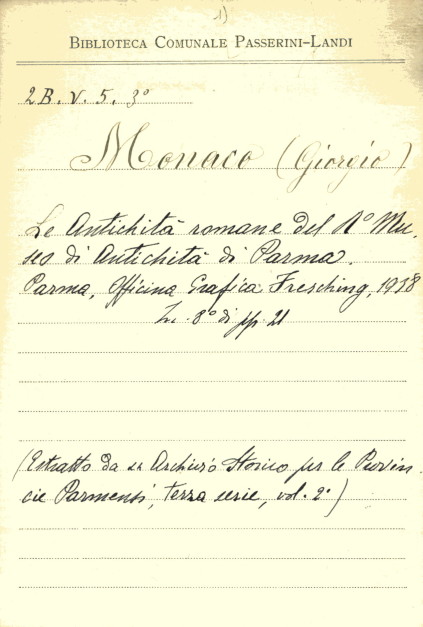 1)
BIBLIOTECA COMUNALE PASSERINI-LANDI
2B. V. 5. 3º
Monaco (Giorgio)
Le Antichità romane del Rº Mu-
seo di Antichità di Parma.
Parma, Officina Grafica Fresching, 1938
In 8º di pp. 21
(Estratto da Archivio Storico per le Provin-
cie Parmensi, terza serie, vol. 2º)